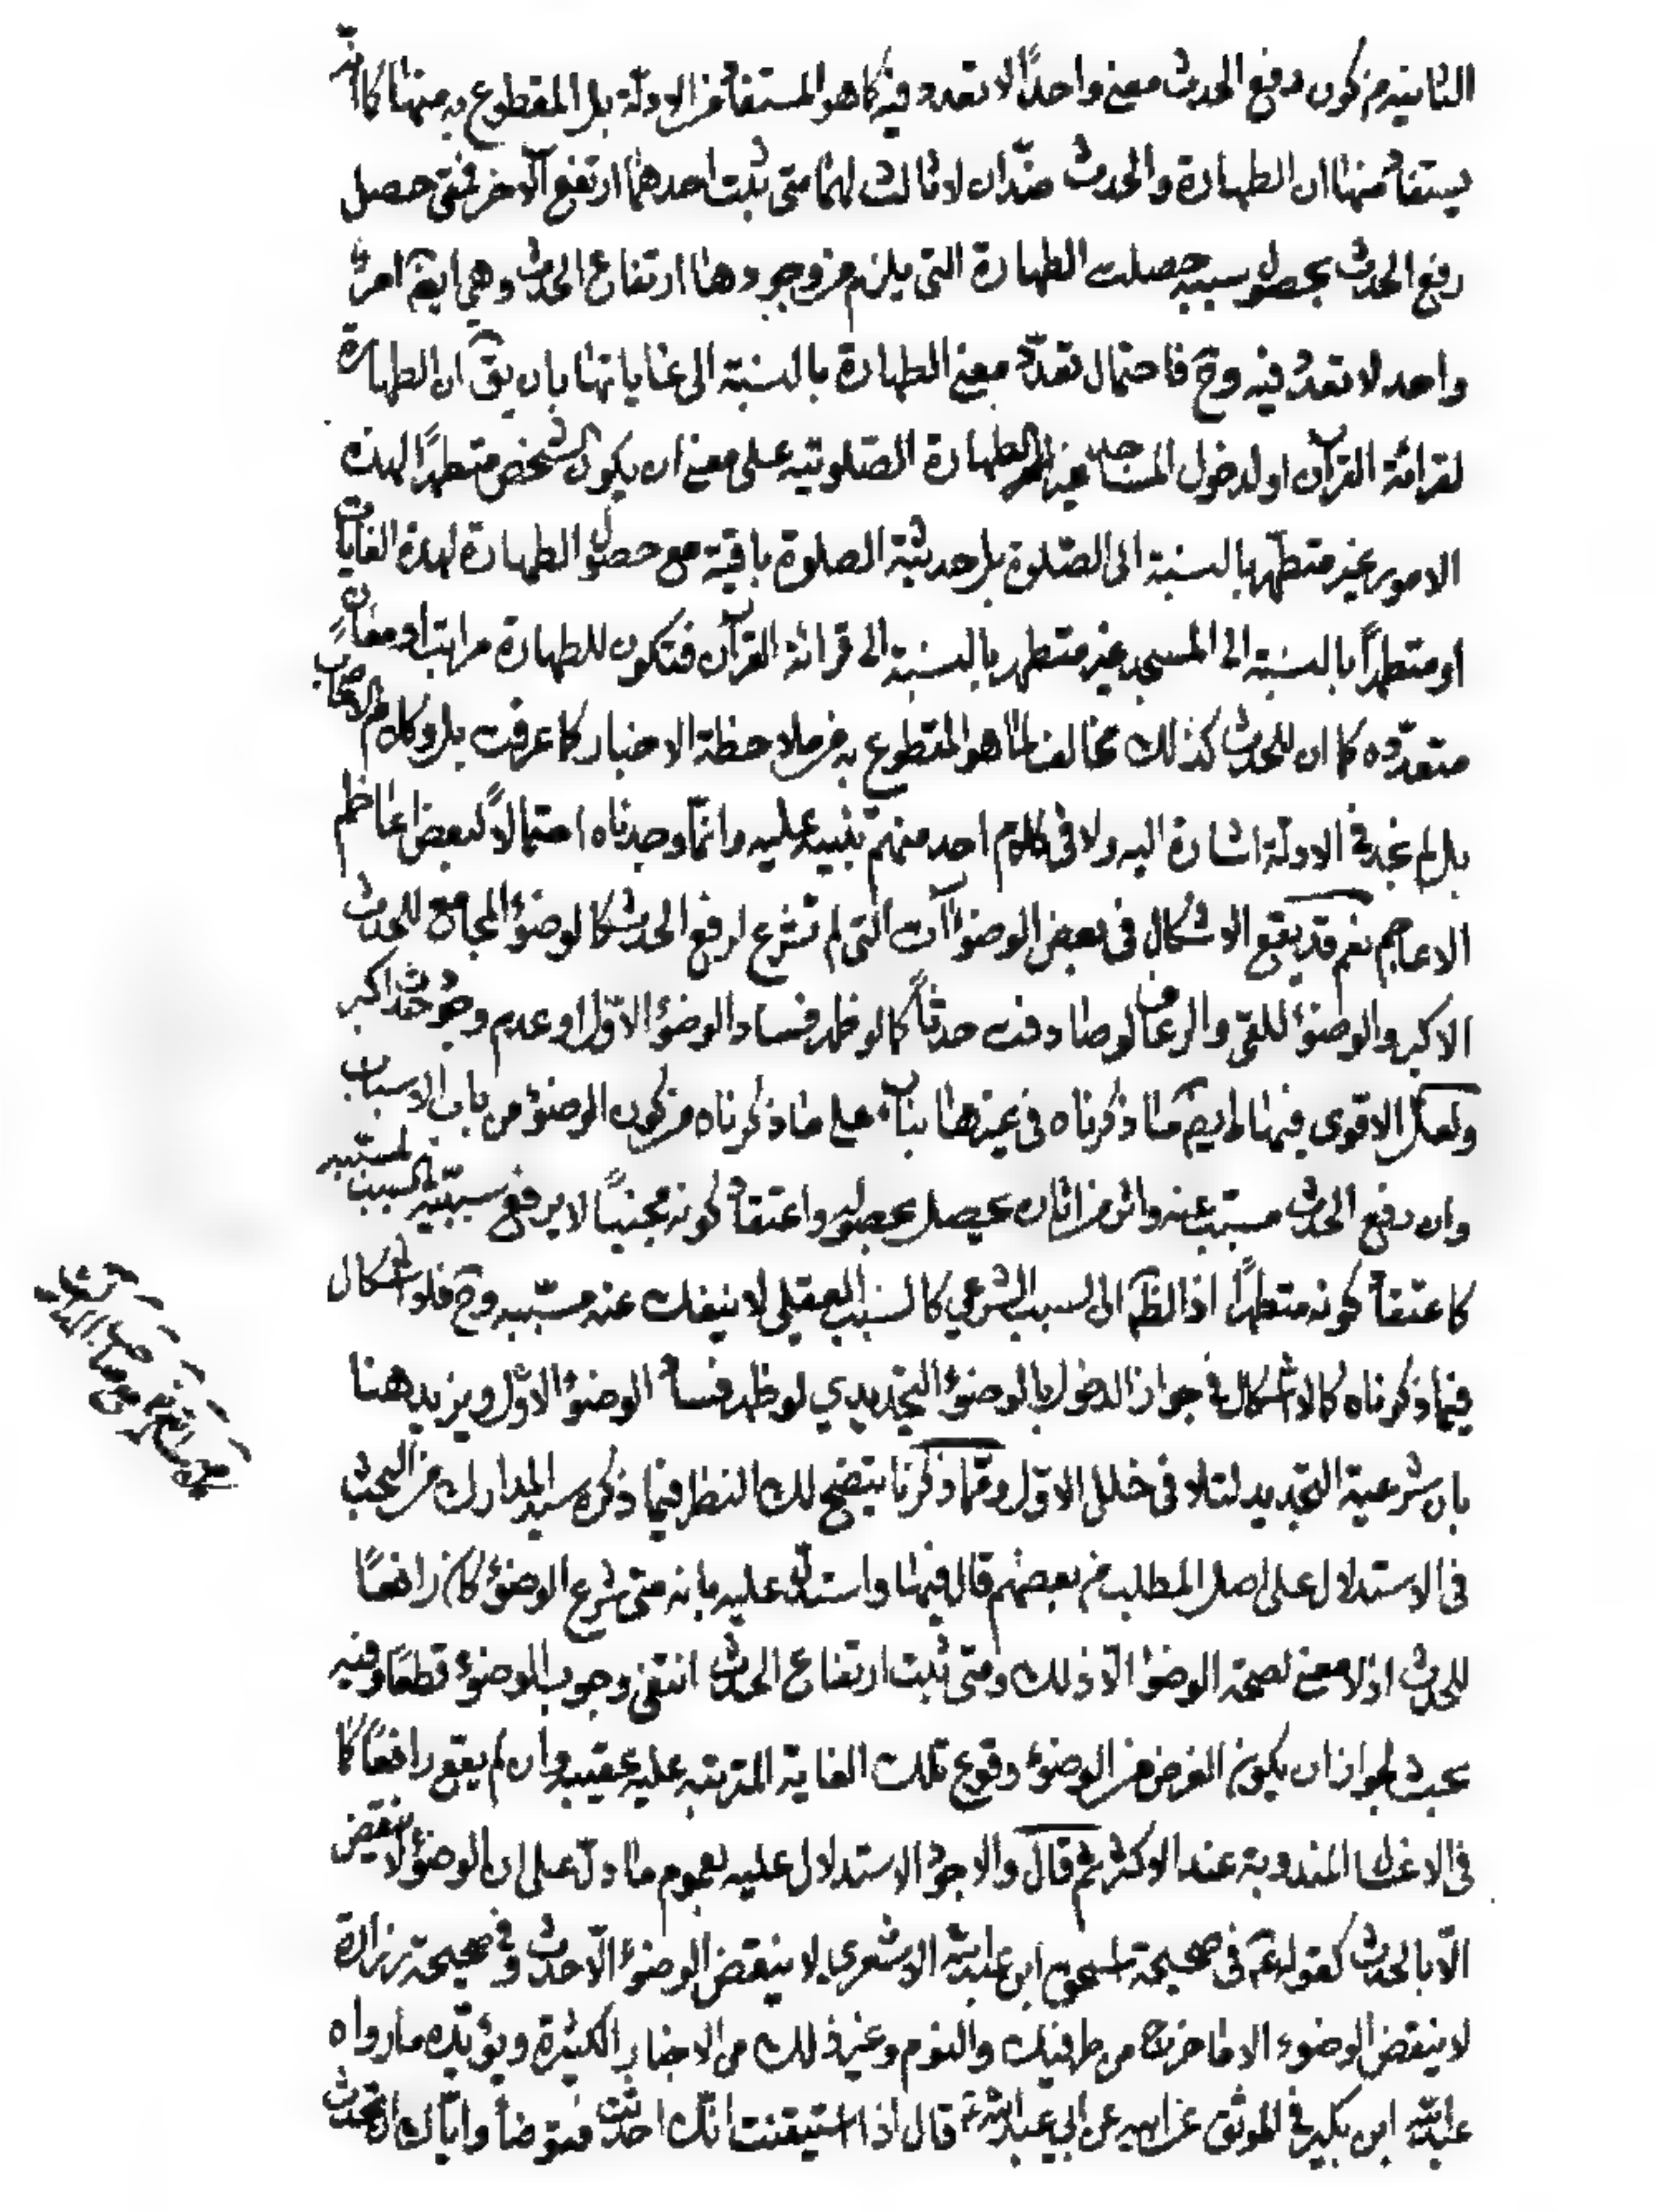 الثانية من كون رفع الحدث معنى واحدًا لا تعدد فيه كما هو المستفاد من الادلة بل المقطوع به منها كما انّه
يستفاد منها ان الطهارة والحدث ضدّان لا ثالث لهما متى ثبت احدهما ارتفع الآخر فمتى حصل
رفع الحدث بحصول سببه حصلت الطهارة التي يلزم من وجودها ارتفاع الحدث وهي ايضا امر
واحد لا تعدد فيه وح فاحتمال تعدّد معنى الطهارة بالنسبة الى غاياتها بان يق ان الطهارة
لقرائة القرآن او لدخول المساجد غير الطهارة الصّلوتيه على معنى ان يكون الشخص متطهرًا لهذه
الامور غير متطهر بالنسبة الى الصّلوة بل حدثية الصلوة باقية مع حصول الطهارة لهذه الغايات
او متطهرًا بالنسبة الى المسجد غير متطهر بالنسبة الى قرائة القرآن فتكون للطهارة مراتب او معان
متعدّده كما ان للحدث كذلك مخالف لما هو المقطوع به من ملاحظة الاخبار كما عرفت بل وكلام الاصحاب
بل لم نجد في الادلة اشارة اليه ولا في كلام احد منهم تنبيه عليه وانّما وجدناه احتمالًا لبعض اعاظم
الاعاجم نعم قد يقع الاشكال في بعض الوضوآت التي لم تشرع لرفع الحدث كالوضوء المجامع للحدث
الاكبر والوضوء للقئ والرعاف لو صادفت حدثًا كما لو ظهر فساد الوضوء الاوّل او عدم وجود حدث اكبر
ولعل الاقوى فيها ايضا ما ذكرناه في غيرها بناء على ما ذكرناه من كون الوضوء من باب الاسباب
وان رفع الحدث مسبّب عنه واثر من اثاره يحصل بحصوله واعتقاد كونه مجنبًا لا يرفع سببيّة السبب لمسبّبه
كاعتقاد كونه متطهرًا اذ الظ ان السبب الشرعي كالسبب العقلي لا ينفك عنه مسبّبه وح فلا اشكال
فيما ذكرناه كالاشكال في جواز الدخول بالوضوء التجديدي لو ظهر فساد الوضوء الاوّل ويزيد هنا
بان شرعية التجديد لتلافي خلل الاوّل وممّا ذكرنا يتضح لك النظر فيما ذكره سيد المدارك من البحث
في الاستدلال على اصل المطلب من بعضهم قال فيها واستدل عليه بانه متى شرع الوضوء كان رافعًا
للحدث اذ لا معنى لصحة الوضوء الّا ذلك ومتى ثبت ارتفاع الحدث انتفى وجوب الوضوء قطعًا وفيه
بحث لجواز ان يكون الغرض من الوضوء وقوع تلك الغاية المترتبه عليه عقيبه وان لم يقع رافعًا كما
في الاغسال المندوبة عند الاكثر ثم قال والاجود الاستدلال عليه بعموم ما دلّ على ان الوضوء لا ينقض
الّا بالحدث كقوله ع في صحيحة اسحق ابن عبد الله الاشعري لا ينقض الوضوء الّا حدث وفي صحيحة زرارة
لا ينقض الوضوء الا ما خرج من طرفيك والنوم وغير ذلك من الاخبار الكثيرة ويؤيّده ما رواه
عبد الله ابن بكير في الموثق عن ابيه عن ابي عبد الله ع قال اذا استيقنت انّك احدثت فتوضأ وايّاك ان تحدث